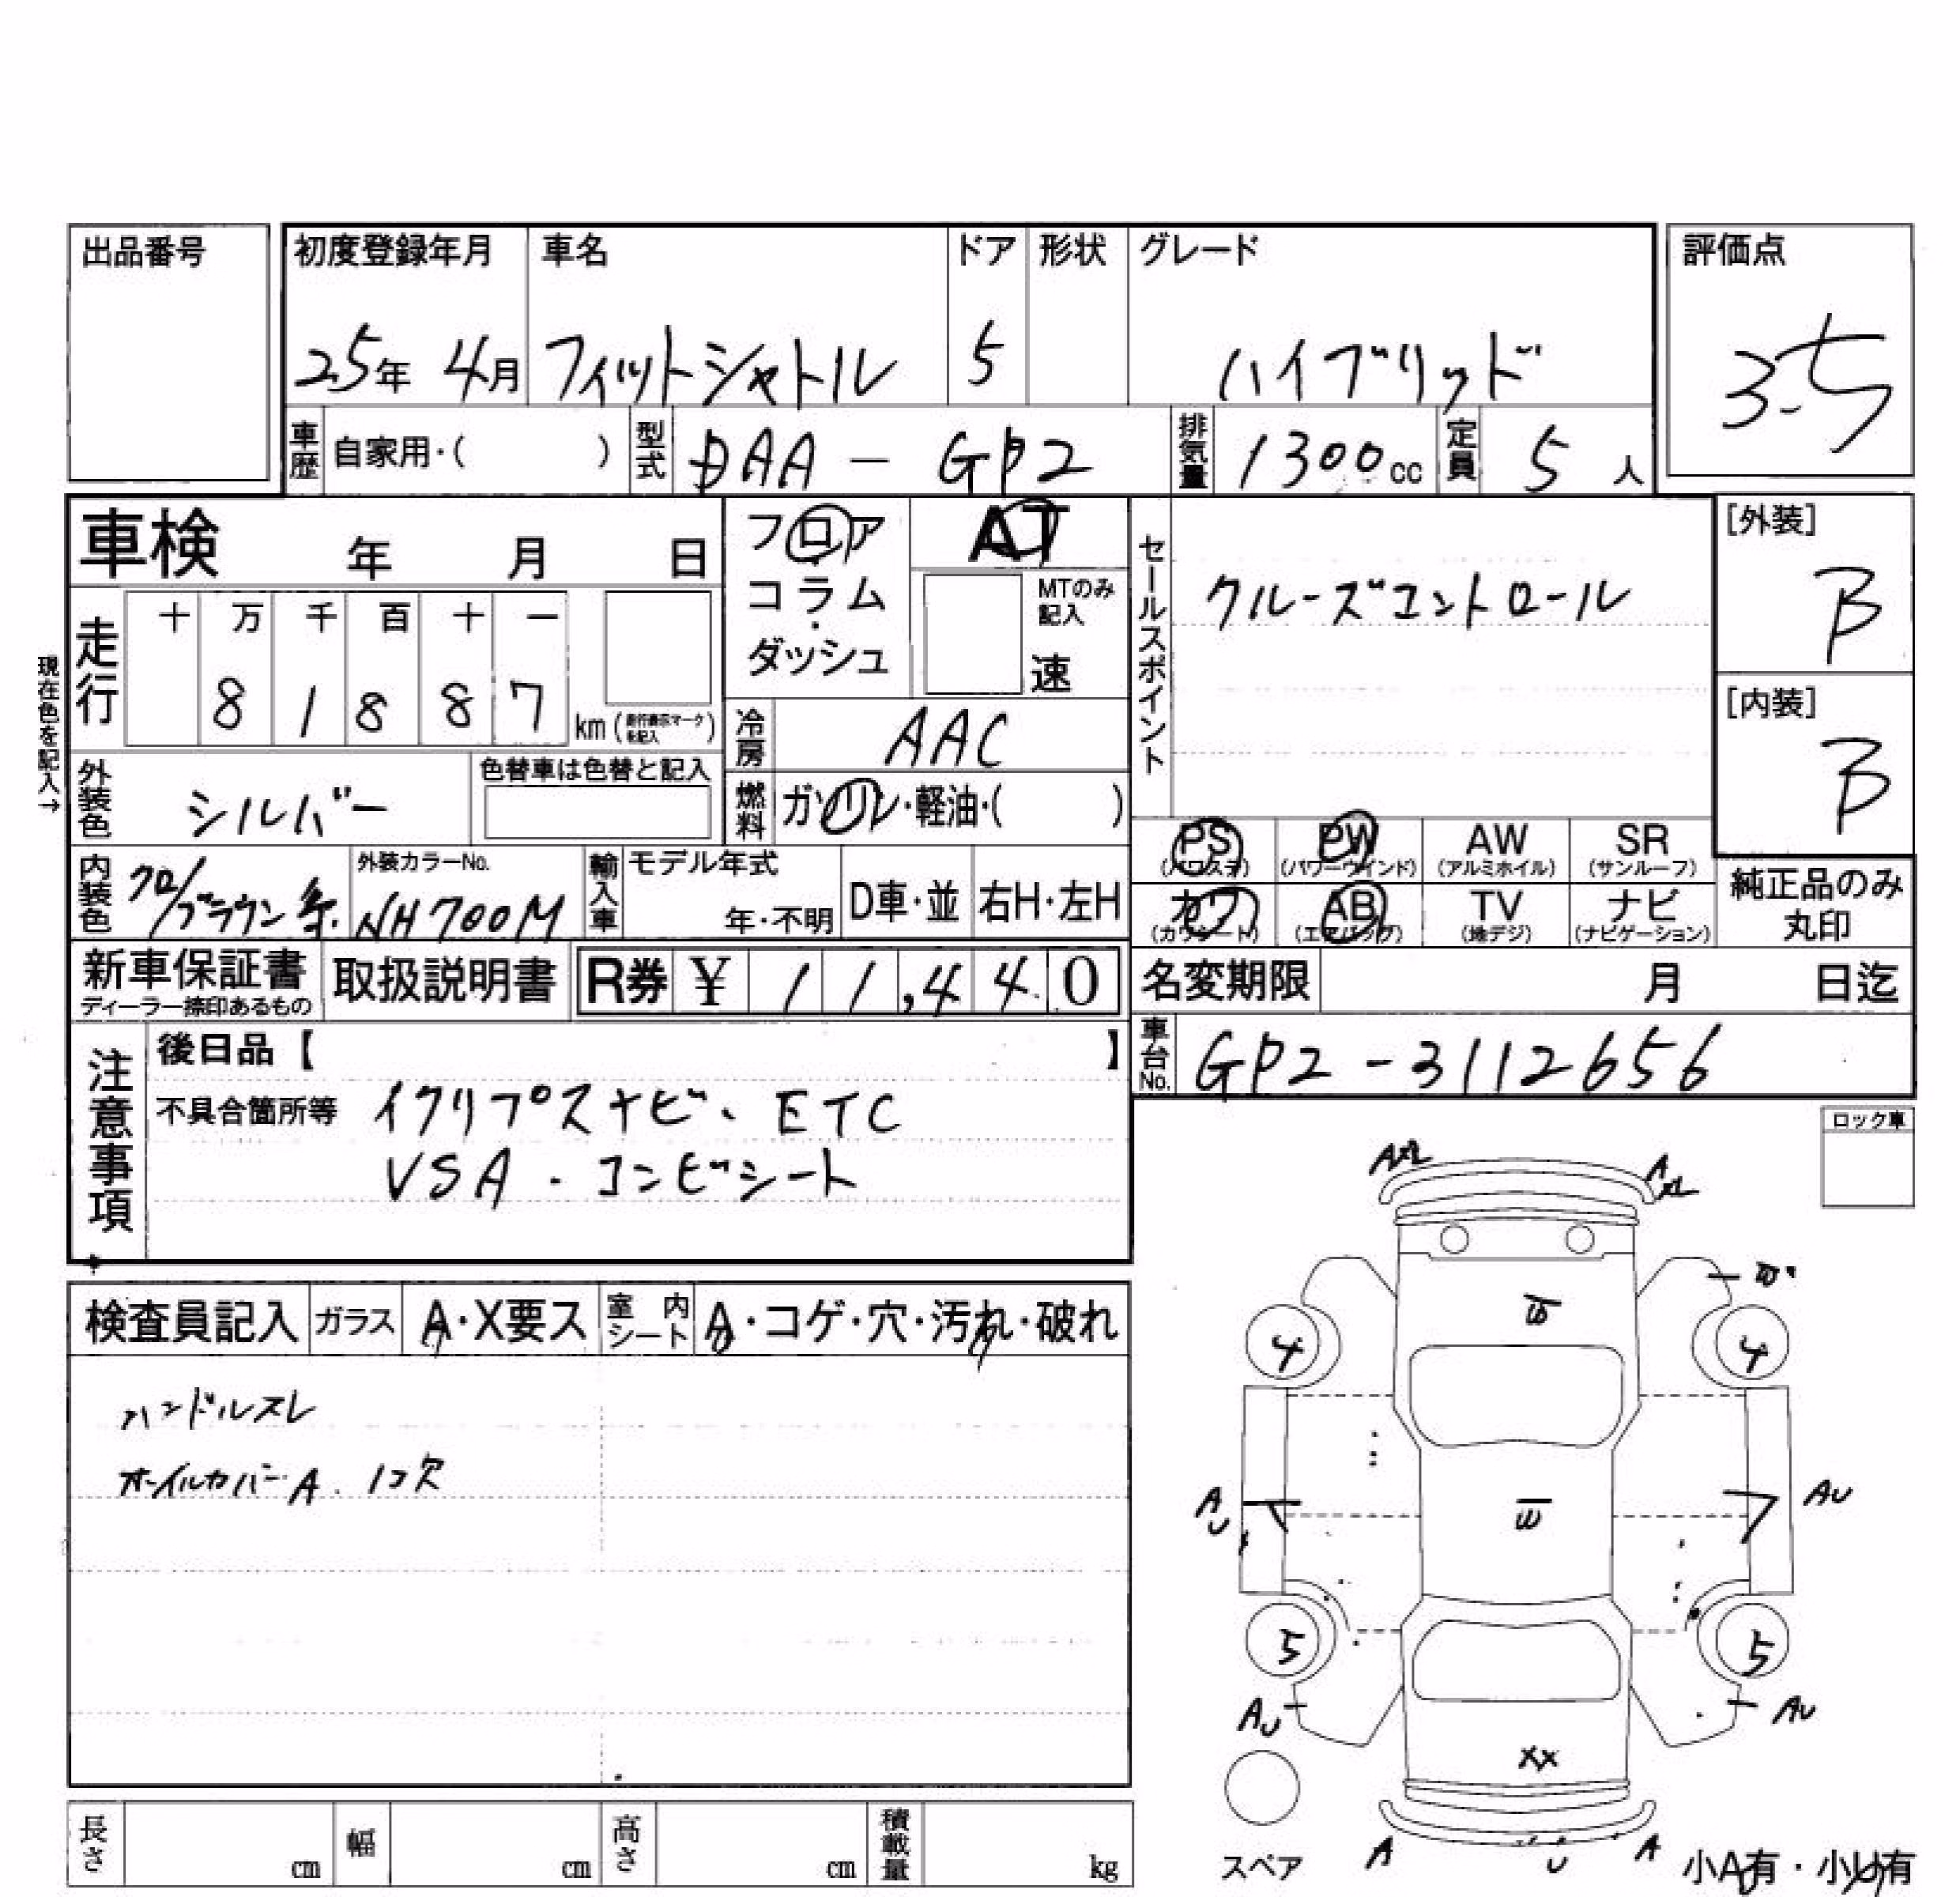 出品番号
初度登録年月 車名 ドア 形状 グレード 評価点
25年 4月 フィットシャトル 5 ハイブリッド 3.5
車歴 自家用・( ) 型式 DAA - GP2 排気量 1300cc 定員 5人
車検 年 月 日
フロア AT
コラム
ダッシュ
MTのみ記入
速
セールスポイント
クルーズコントロール
[外装]
B
[内装]
B
現在色を記入→
走行 十 万 千 百 十 一
8 1 8 8 7 km (走行表示マークを記入)
冷房 AAC
外装色 シルバー 色替車は色替と記入
燃料 ガソリン・軽油・( )
PS (パワステ) PW (パワーウインド) AW (アルミホイル) SR (サンルーフ)
カワ (カワシート) AB (エアバッグ) TV (地デジ) ナビ (ナビゲーション)
純正品のみ丸印
内装色 クロ/ブラウン系 外装カラーNo. NH700M 輸入車 モデル年式 年・不明 D車・並 右H・左H
新車保証書 ディーラー捺印あるもの 取扱説明書 R券 ¥ 11,440 名変期限 月 日迄
車台No. GP2-3112656
注意事項
後日品【 】
不具合箇所等 イクリプスナビ、ETC
VSA・コンビシート
ロック車
検査員記入 ガラス A・X要ス 室内シート A・コゲ・穴・汚れ・破れ
ハンドルスレ
ホイルカバーA. 1コ欠
AXL
W
W
4 4
AU AU
W
5 5
AU AU
XX
A U A
スペア
小A有・小U有
長さ cm 幅 cm 高さ cm 積載量 kg